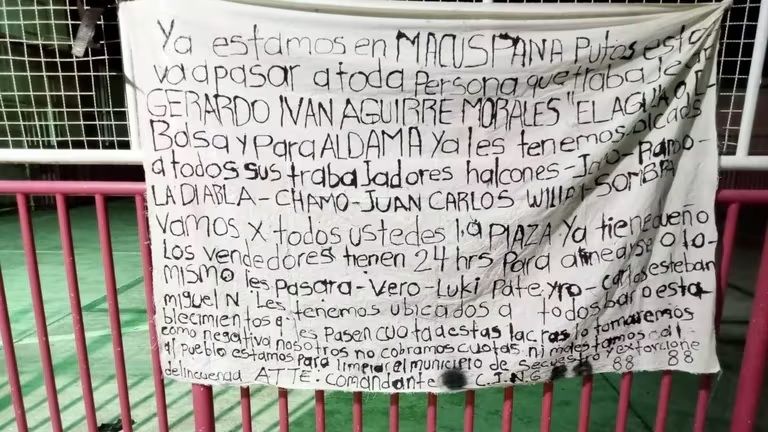 Ya estamos en MACUSPANA Putos esto
va a pasar a toda Persona que trabaje
GERARDO IVAN AGUIRRE MORALES "EL
Bolsa y Para ALDAMA Ya les tenemos
a todos sus trabajadores halcones -
LA DIABLA - CHAMO - JUAN CARLOS - SOMBRA
Vamos X todos ustedes La PLAZA Ya tiene dueño
Los vendedores tienen 24 hrs Para alinearse o lo
mismo les Pasara - Vero - Luki Pate - Carlos esteban
miguel N Les tenemos ubicados a todos bar o esta
blecimientos q les Pasen cuota a estas lacras lo tomaremos
como negativa nosotros no cobramos cuotas ni molestamos
al Pueblo estamos Para limpiar el municipio de secuestro y extorcione
delincuencia ATTE. Comandante C.J.N.G 88 88